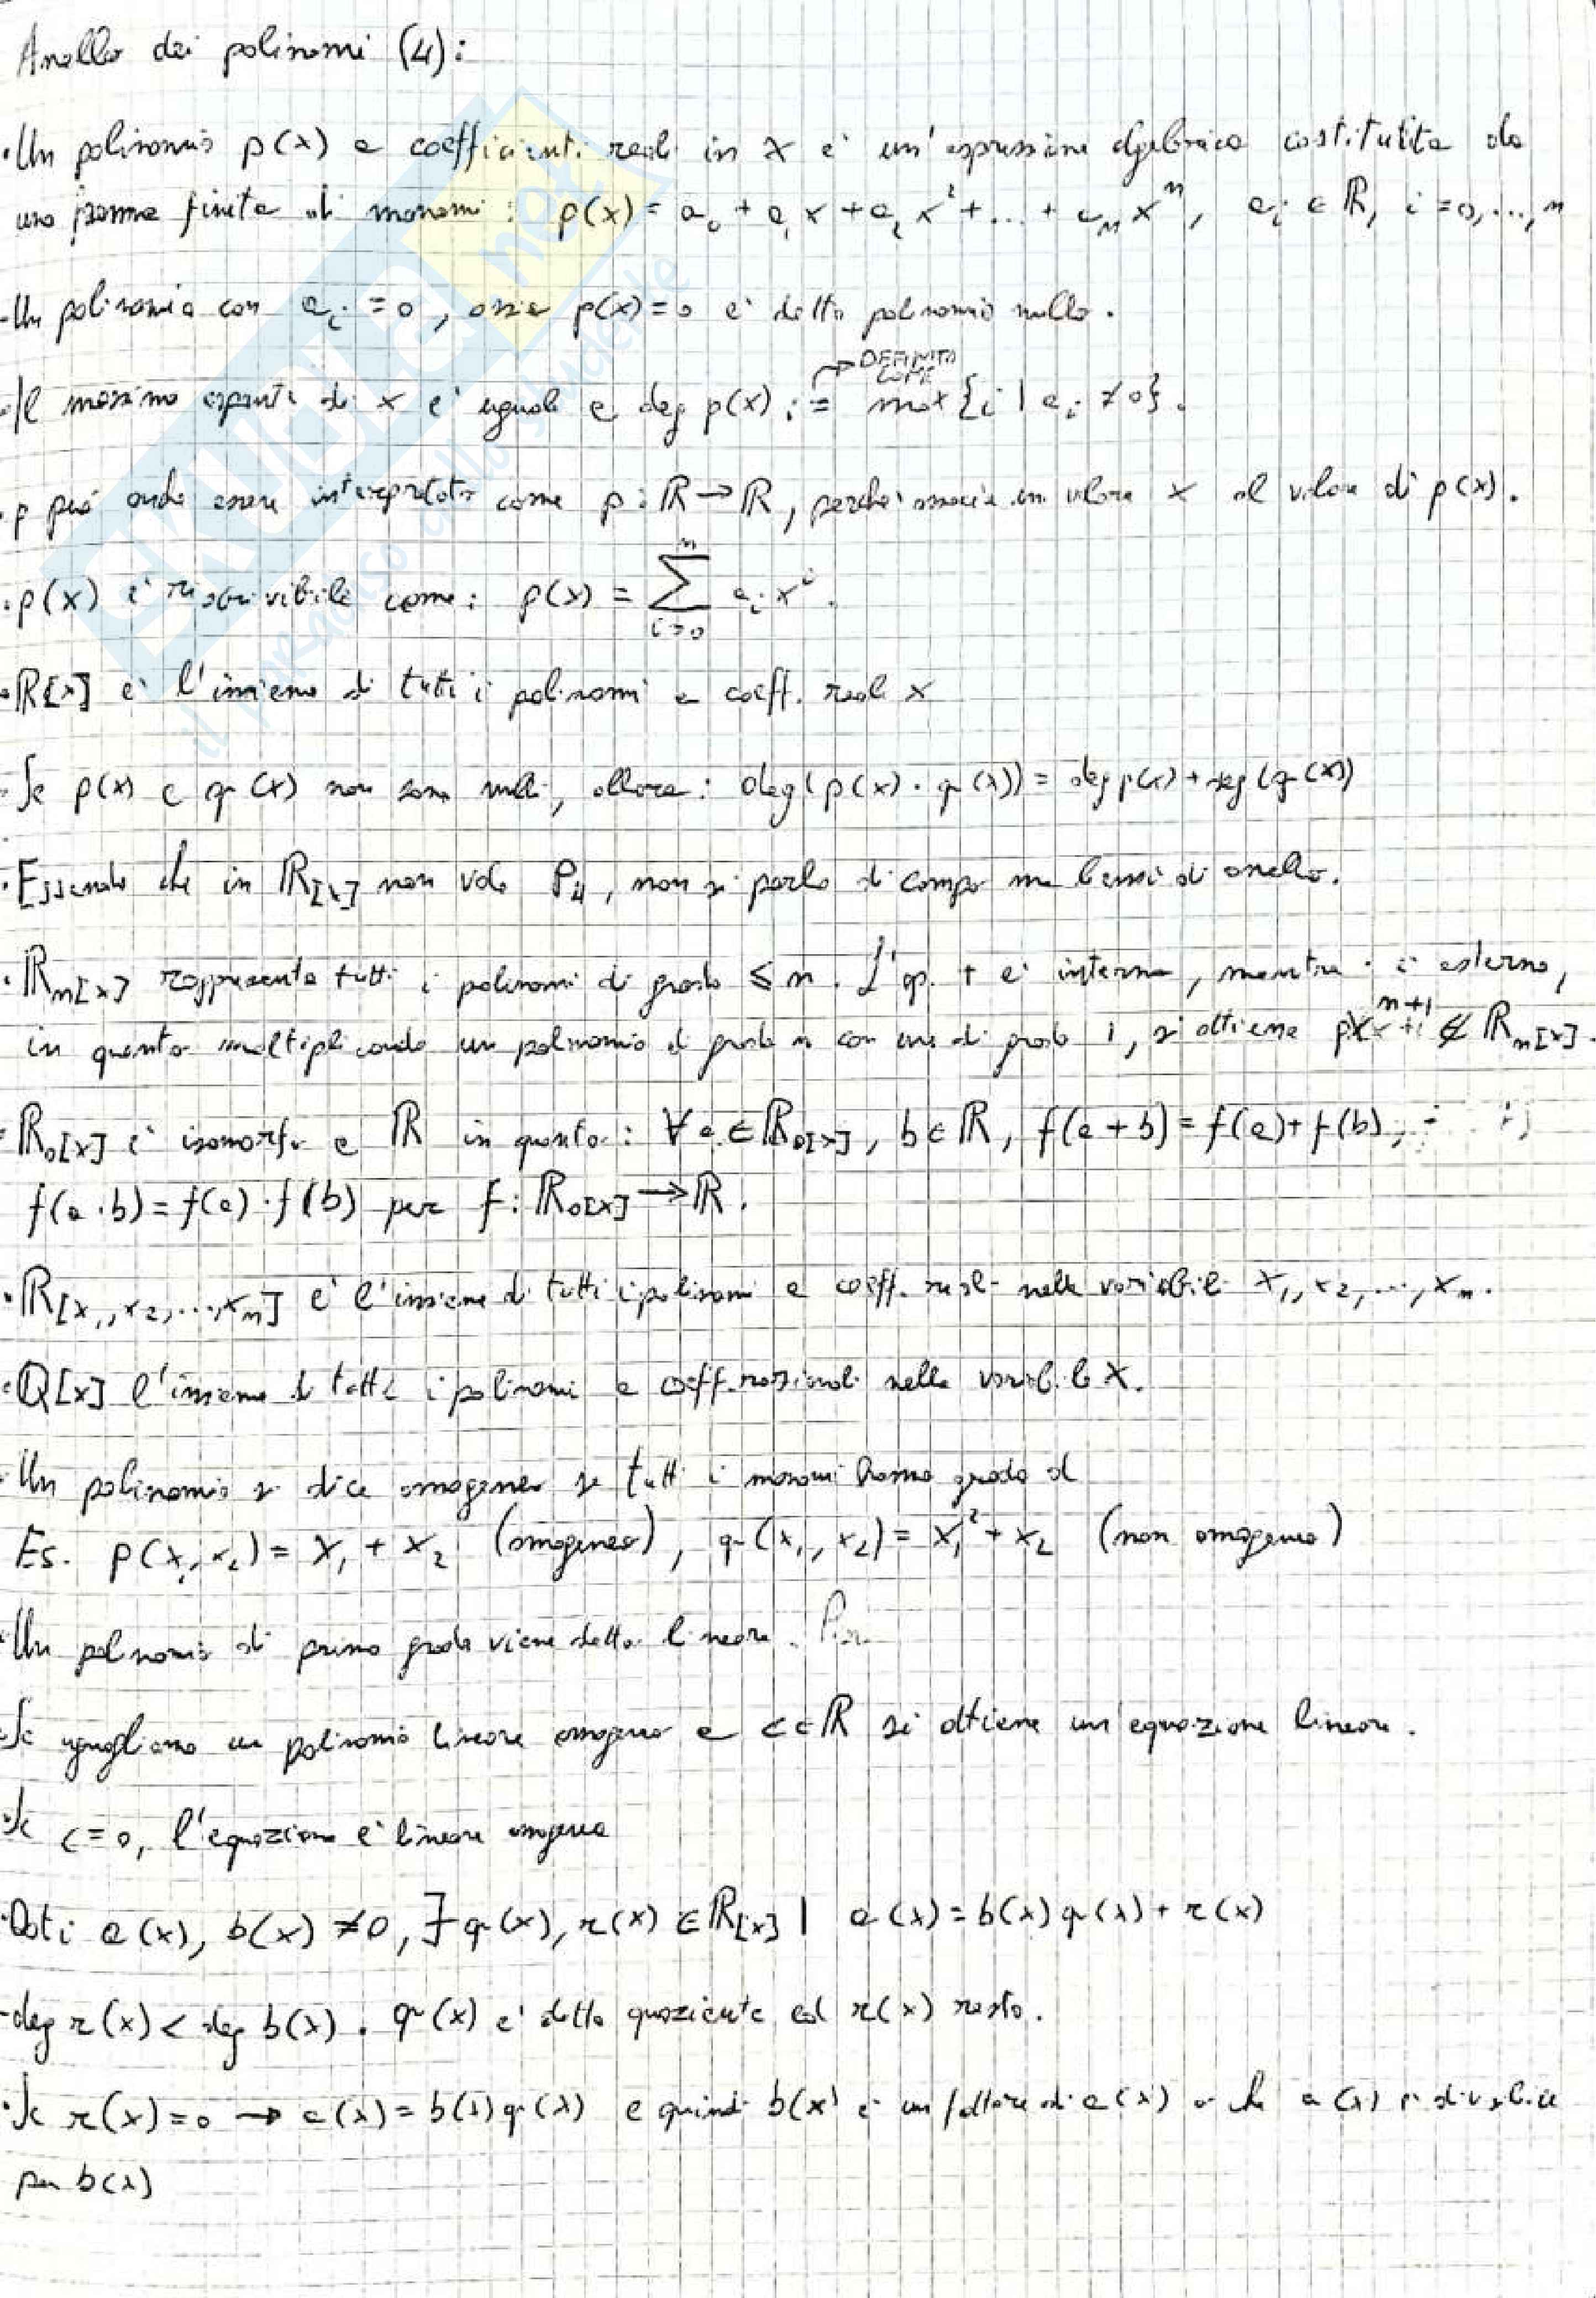 Anello dei polinomi (4):
• Un polinomio p(x) a coefficienti reali in x è un'espressione algebrica costituita da
una somma finita di monomi: p(x) = a₀ + a₁x + a₂x² + ... + aₙxⁿ, aᵢ ∈ ℝ, i = 0, ..., n
• Un polinomio con aᵢ = 0, ossia p(x) = 0 è detto polinomio nullo.
→ DEFINITO COME
• Il massimo esponente di x è uguale a deg p(x) := max {i | aᵢ ≠ 0}.
• p può anche essere interpretato come p: ℝ → ℝ, perché associa un valore x al valore di p(x).
• p(x) è riscrivibile come: p(x) = ∑ⁿᵢ₌₀ aᵢxⁱ.
• ℝ[x] è l'insieme di tutti i polinomi a coeff. reali x
• Se p(x) e q(x) non sono nulli, allora: deg(p(x) · q(x)) = deg p(x) + deg(q(x))
• Essendo che in ℝ[x] non vale P₄, non si parla di campo ma bensì di anello.
• ℝₙ[x] rappresenta tutti i polinomi di grado ≤ n. L'op. + è interna, mentre · è esterna,
in quanto moltiplicando un polinomio di grado n con uno di grado 1, si ottiene xⁿ⁺¹ ∉ ℝₙ[x].
• ℝ₀[x] è isomorfo a ℝ in quanto: ∀ a ∈ ℝ₀[x], b ∈ ℝ, f(a + b) = f(a) + f(b),
f(a · b) = f(a) · f(b) per f: ℝ₀[x] → ℝ.
• ℝ[x₁, x₂, ..., xₙ] è l'insieme di tutti i polinomi a coeff. reali nelle variabili x₁, x₂, ..., xₙ.
• ℚ[x] l'insieme di tutti i polinomi a coeff. razionali nella variabile x.
• Un polinomio si dice omogeneo se tutti i monomi hanno grado d
Es. p(x₁, x₂) = x₁ + x₂ (omogeneo), q(x₁, x₂) = x₁² + x₂ (non omogeneo)
• Un polinomio di primo grado viene detto lineare.
• Se uguagliamo un polinomio lineare omogeneo a c ∈ ℝ si ottiene un'equazione lineare.
• Se c = 0, l'equazione è lineare omogenea
• Dati a(x), b(x) ≠ 0, ∃ q(x), r(x) ∈ ℝ[x] | a(x) = b(x) q(x) + r(x)
- deg r(x) < deg b(x). q(x) è detto quoziente ed r(x) resto.
• Se r(x) = 0 → a(x) = b(x) q(x) e quindi b(x) è un fattore di a(x) o che a(x) è divisibile
per b(x)
EKUOLE net
il paradiso dello studente